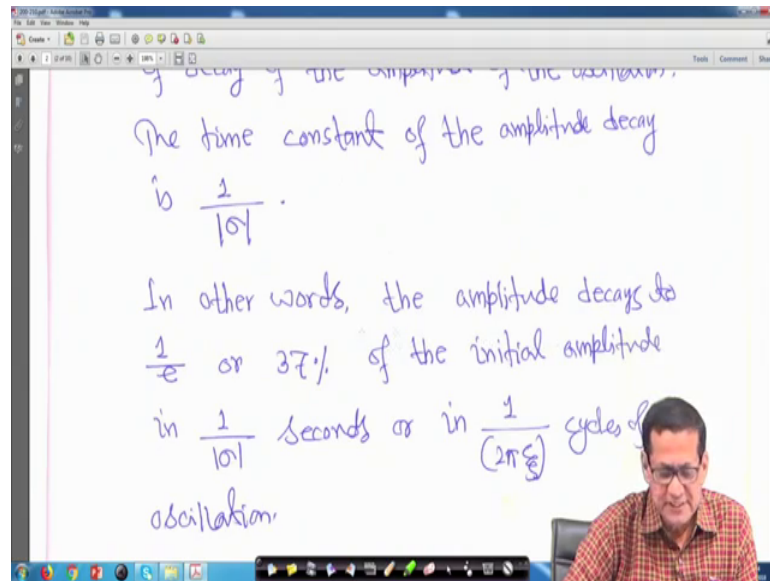 200-250.pdf - Adobe Acrobat Pro
File Edit View Window Help
Create
Tools Comment
of decay of the amplitude of the oscillation.
The time constant of the amplitude decay
is 1/|σ| .
In other words, the amplitude decays to
1/e or 37% of the initial amplitude
in 1/|σ| seconds or in 1/(2πξ) cycles of
oscillation.